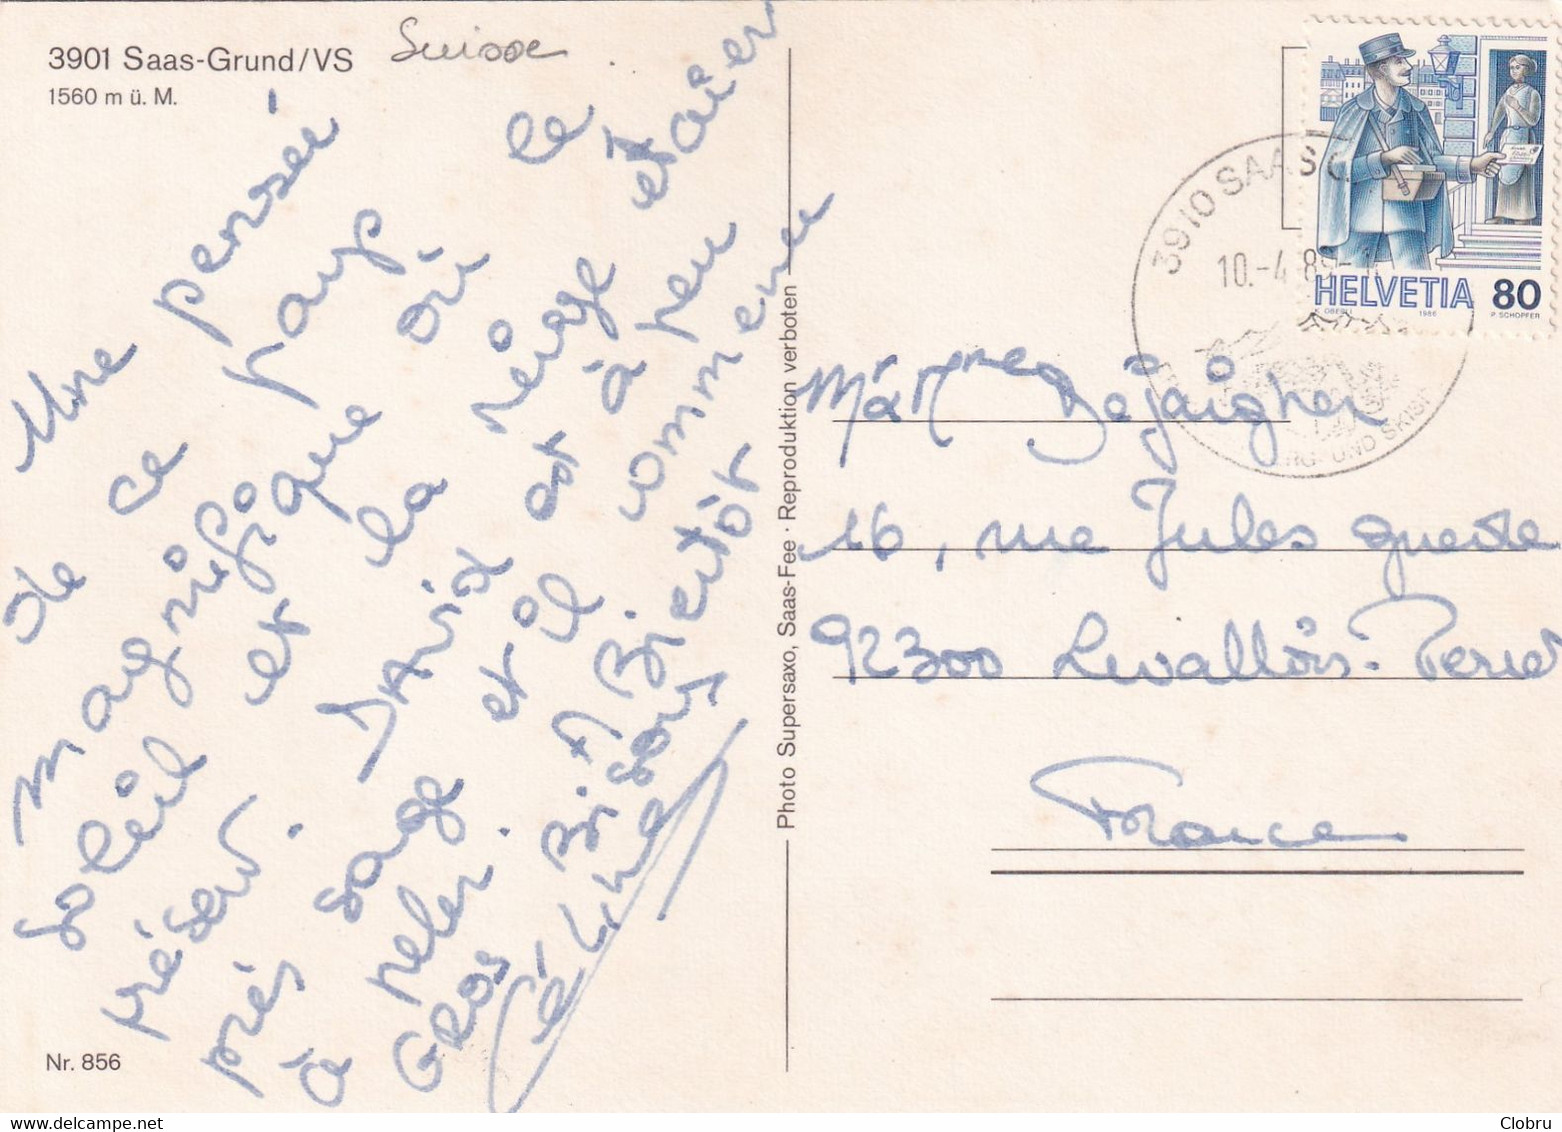 3901 Saas-Grund/VS
1560 m ü. M.
Suisse
Une pensée
de ce pays
magnifique où le
soleil et la neige étaient
présent. DAVID est à peu
près sage et il commence
à parler. A Bientôt
GROS Bisous
Céline
Nr. 856
Photo Supersaxo, Saas-Fee · Reproduktion verboten
3910 SAAS
10.-4.8
BERG- UND SKI
HELVETIA 80
K. OBERLI 1986 P. SCHOPFER
16, rue Jules Guesde
92300 Levallois-Perret
France
Clobru